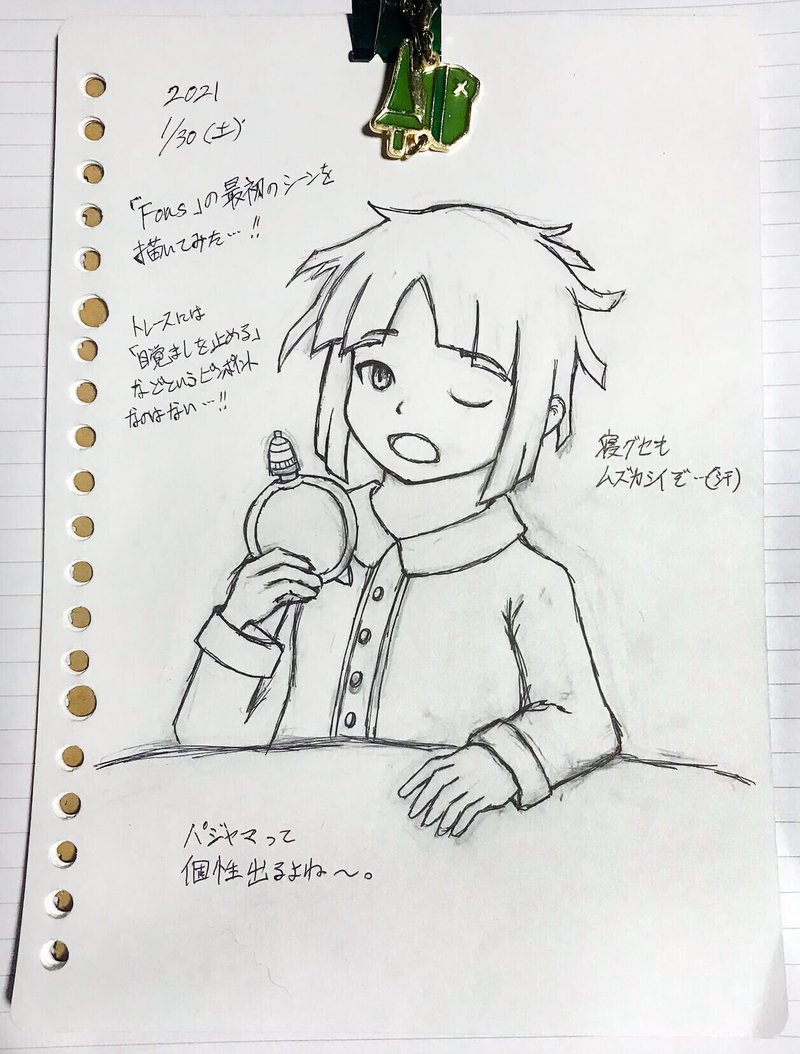 2021
1/30(土)
「Fons」の最初のシーンを
描いてみた…!!
トレースには
「目覚ましを止める」
などというピンポイント
なのはない…!!
寝グセも
ムズカシイぞ…(汗)
パジャマって
個性出るよね〜。